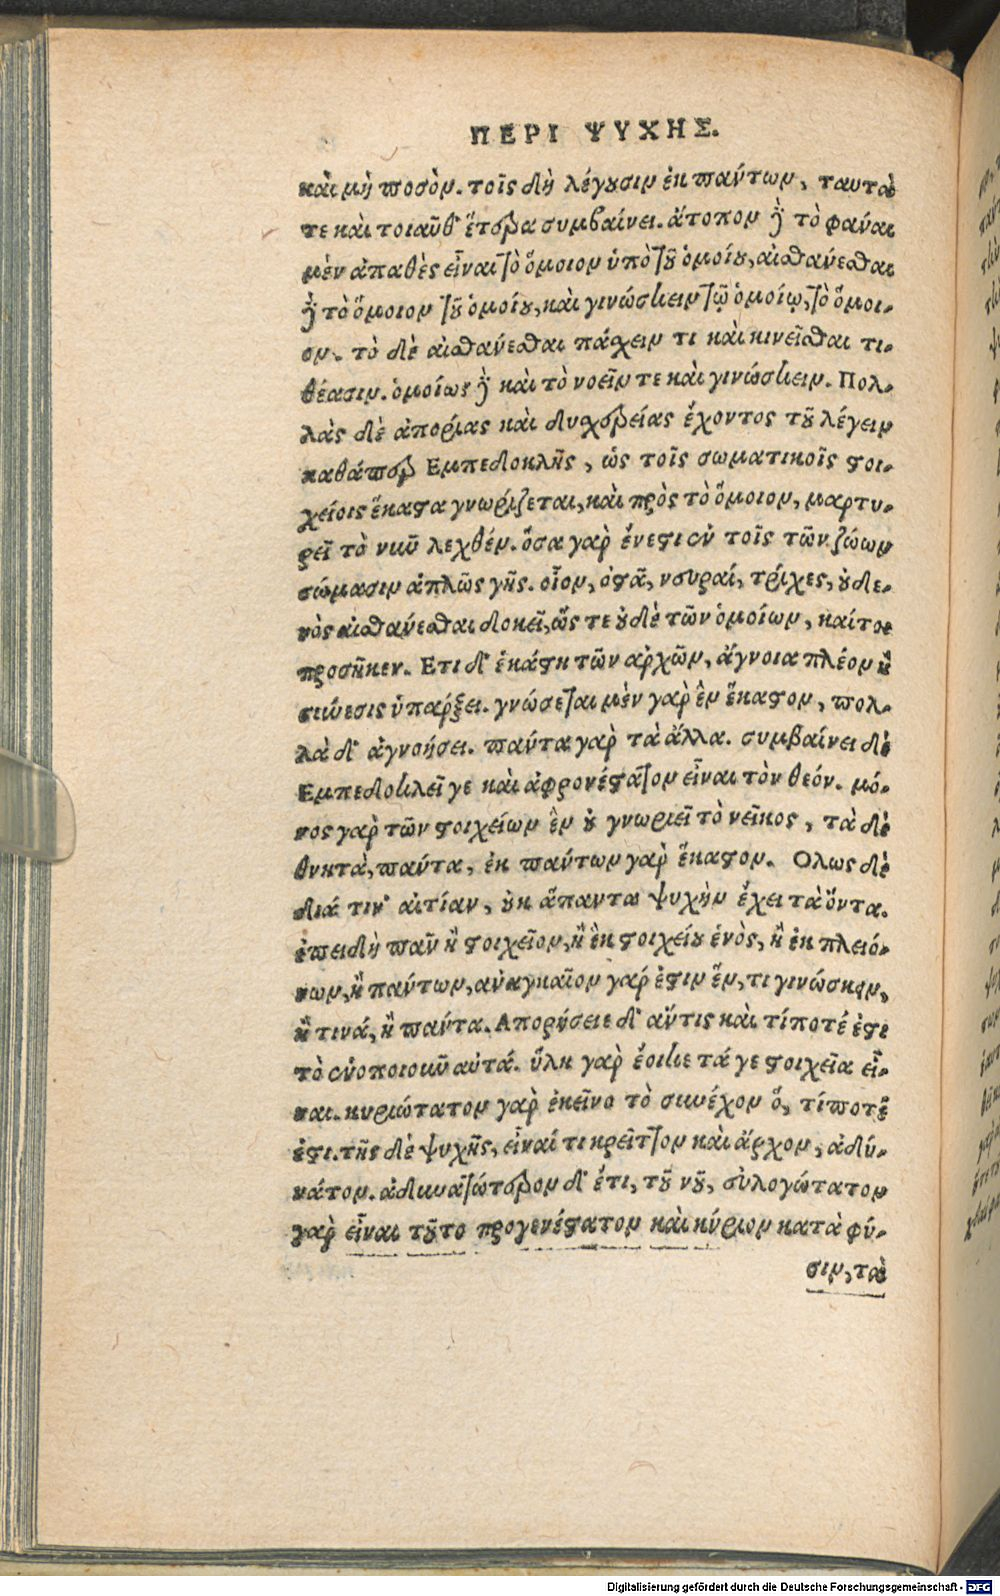 ΠΕΡΙ ΨΥΧΗΣ.
καὶ μὴ ποσόν. τοῖς δὴ λέγουσιν ἐκ πάντων, ταυτά
τε καὶ τοιαῦθ' ἕτερα συμβαίνει. ἄτοπον δὲ τὸ φάναι
μὲν ἀπαθὲς εἶναι τὸ ὅμοιον ὑπὸ τοῦ ὁμοίου, αἰσθάνεσθαι
δὲ τὸ ὅμοιον τοῦ ὁμοίου, καὶ γινώσκειν τῷ ὁμοίῳ, τὸ ὅμοι-
ον. τὸ δὲ αἰσθάνεσθαι πάσχειν τι καὶ κινεῖσθαι τι-
θέασιν. ὁμοίως δὲ καὶ τὸ νοεῖν τε καὶ γινώσκειν. Πολ-
λὰς δὲ ἀπορίας καὶ δυσχερείας ἔχοντος τοῦ λέγειν
καθάπερ Εμπεδοκλῆς, ὡς τοῖς σωματικοῖς στοι-
χείοις ἕκαστα γνωρίζεται, καὶ πρὸς τὸ ὅμοιον, μαρτυ-
ρεῖ τὸ νιῦ λεχθέν. ὅσα γὰρ ἔνεστιν ἐν τοῖς τῶν ζώων
σώμασιν ἁπλῶς γῆς. οἷον, ὀστᾶ, νευραί, τρίχες, οὐδε-
νὸς αἰσθάνεσθαι δοκεῖ, ὥς τε οὐδὲ τῶν ὁμοίων, καίτοι
προσῆκεν. Ετι δ' ἑκάστη τῶν ἀρχῶν, ἄγνοια πλέον ἢ
σύνεσις ὑπάρξει. γνώσεται μὲν γὰρ ἓν ἕκαστον, πολ-
λὰ δ' ἀγνοήσει. πάντα γὰρ τὰ ἄλλα. συμβαίνει δὲ
Εμπεδοκλεῖ γε καὶ ἀφρονέστατον εἶναι τὸν θεόν. μό-
νος γὰρ τῶν στοιχείων ἓν οὐ γνωριεῖ τὸ νεῖκος, τὰ δὲ
θνητὰ, πάντα, ἐκ πάντων γὰρ ἕκαστον. Ολως δὲ
διά τιν' αἰτίαν, οὐκ ἅπαντα ψυχὴν ἔχει τὰ ὄντα.
ἐπειδὴ πᾶν ἢ στοιχεῖον, ἢ ἐκ στοιχείου ἑνὸς, ἢ ἐκ πλειό-
νων, ἢ πάντων, ἀναγκαῖον γάρ ἐστιν ἕν, τι γινώσκειν,
ἢ τινά, ἢ πάντα. Απορήσειε δ' ἄν τις καὶ τί ποτέ ἐστι
τὸ ἑνοποιοιῦ αὐτά. ὕλη γὰρ ἔοικε τά γε στοιχεῖα εἶ-
ναι. κυριώτατον γὰρ ἐκεῖνο τὸ συνέχον ὅ, τί ποτέ
ἐστι. τῆς δὲ ψυχῆς, εἶναί τι κρεῖττον καὶ ἄρχον, ἀδύ-
νατον. ἀδυνατώτερον δ' ἔτι, τοῦ νοῦ, εὐλογώτατον
γὰρ εἶναι τοῦτο προγενέστατον καὶ κύριον κατὰ φύ-
σιν, τὰ
Digitalisierung gefördert durch die Deutsche Forschungsgemeinschaft - DFG